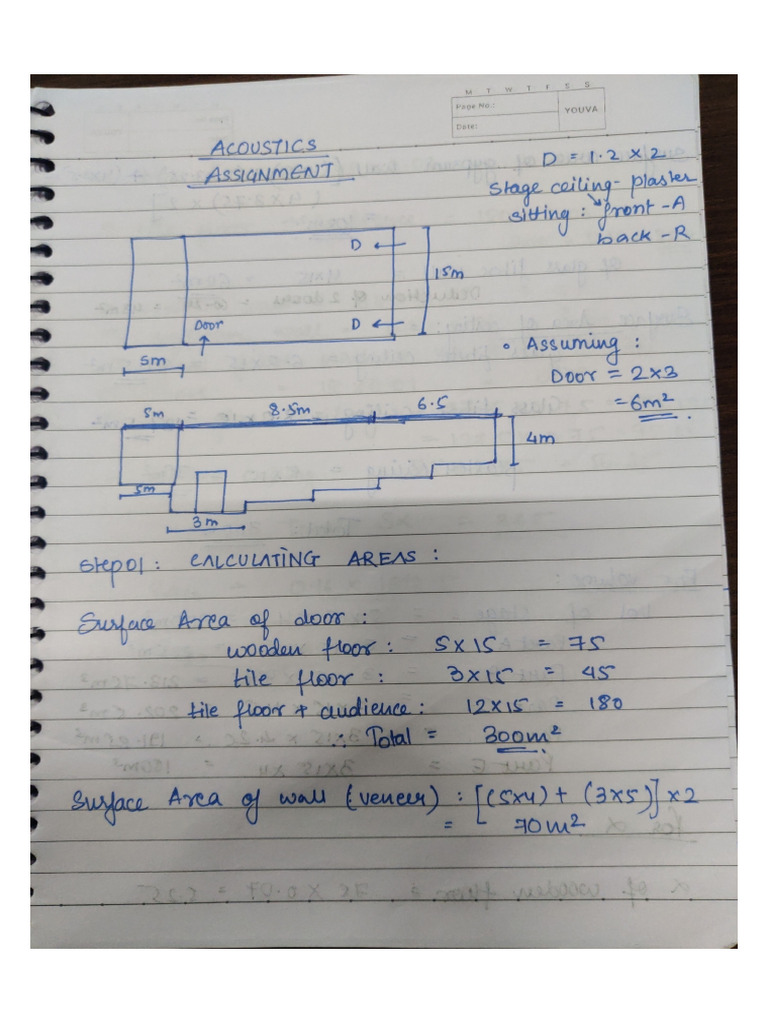 M T W T F S S
Page No.:
YOUVA
Date:
ACOUSTICS
ASSIGNMENT
D = 1.2 x 2
Stage ceiling - plaster
sitting : front - A
back - R
D
15m
Door
D
5m
• Assuming :
Door = 2x3
= 6m²
5m 8.5m 6.5
4m
5m
3m
Step01: CALCULATING AREAS :
Surface Area of door :
wooden floor : 5x15 = 75
tile floor : 3x15 = 45
tile floor + audience : 12x15 = 180
∴ Total = 300m²
Surface Area of wall (veneer) : [(5x4) + (3x5)] x2
= 70m²